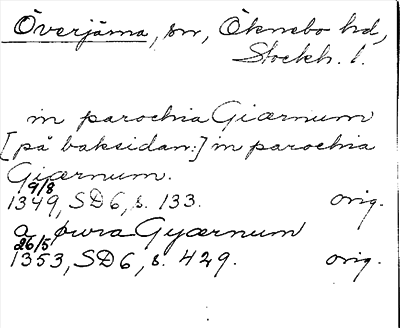 Överjärna, sn, Öknebo hd,
Stockh. l.
in parochia Giærnum
[på baksidan:] in parochia
Giærnum.
9/8
1349, SD 6, s. 133. orig.
a pura Gyærnum
26/5
1353, SD 6, s. 429. orig.